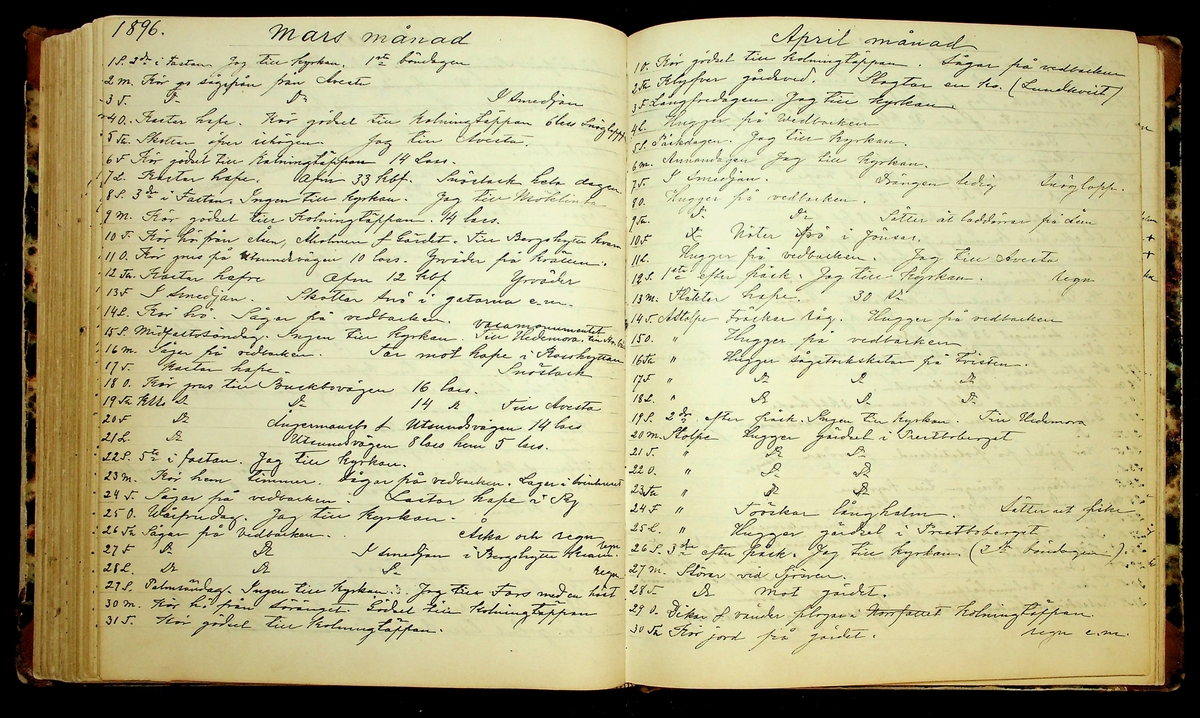 1896. Mars månad
1 S. 2dr i Fastan. Jag till kyrkan. 1sta böndagen
2 M. Kör gs sågspån från Avesta
3 T. D D I smedjan
4 O. Kastar hafre. Kör gödsel till Kolningtäppan 6 lass
5 Th. Skottar öfver ishögen. Jag till Avesta.
6 F Kör gödsel till Kolningtäppan 14 lass.
7 L. Kastar hafre. Afm 33 kbf. Snöslask hela dagen
8 S. 3dr i Fastan. Ingen till kyrkan. Jag till
9 M. Kör gödsel till Kolningtäppan. 14 lass
10 T. Kör hö från Åsen, Åholmen o Gärdet. Till Bergshyttan kvarn
11 O. Kör grus på Utsundsvägen 10 lass. Yrväder på kvällen.
12 Th. Kastar hafre Afm 12 kbf Yrväder
13 F. I smedjan. Skottar snö i gatorna e.m.
14 L. Kör hö. Sågar på vedbacken.
15 S. Midfastosöndag. Ingen till kyrkan. Till Hedemora. vasamonumentet
16 M. Sågar på vedbacken. Tar mot hafre i
17 T. Kastar hafre. Snöslask
18 O. Kör grus till Buckbovägen 16 lass.
19 Th D D 14 D Till Avesta
20 F. D Utsundsvägen 14 lass
21 L. D Utsundsvägen 8 lass hem 5 lass.
22 S. 5te i fastan. Jag till kyrkan.
23 M. Kör hem timmer. Sågar på vedbacken. Lagar i brinken
24 T. Sågar på vedbacken. Lastar hafre i Ry
25 O. Wårfrudag. Jag till kyrkan.
26 Th Sågar på vedbacken. Åska och regn
27 F D D I smedjan i Bergshyttan kvarn regn
28 L. D D D regn
29 S. Palmsöndag. Ingen till kyrkan. Jag till Fors med en häst
30 M. Kör hö från Gödsel till Kolningtäppan
31 T. Kör gödsel till Kolningtäppan.
April månad
1 O. Kör gödsel till Kolningtäppan. Sågar på vedbacken
2 Th Klyfver gårdsved. Slagtar en ko. (Lundkvist)
3 F Långfredagen. Jag till kyrkan.
4 L. Hugger på vedbacken
5 S. Påskdagen. Jag till kyrkan.
6 M. Annandagen Jag till kyrkan.
7 T. I smedjan. Drängen ledig Snöglopp.
8 O. Hugger på vedbacken.
9 Th. D D Sätter åt laddörrar på Åsen
10 F D Nöter i Jönsas.
11 L. Hugger på vedbacken. Jag till Avesta
12 S. 1sta efter påsk. Jag till kyrkan. regn
13 M. Fläktar hafre. 30 D
14 T. A Stolpe Tröskar råg. Hugger på vedbacken
15 O. " Hugger på vedbacken
16 Th " Hugger på tvisten.
17 F " D D D
18 L. " D D D
19 S. 2dr efter påsk. Ingen till kyrkan. Till Hedemora
20 M. Stolpe Hugger gärdsel i Prestbberget
21 T. " D D
22 O. " D D
23 Th " D D
24 F " Tröskar långhalm. Sätter ut fiske
25 L. " Hugger gärdsel i Prestbberget
26 S. 3de efter påsk. Jag till kyrkan. (2dr böndagen).
27 M. Störar vid
28 T. D mot gärdet.
29 O. Dikar o vänder plogar Kolningtäppan
30 Th Kör jord på gärdet. regn e.m.